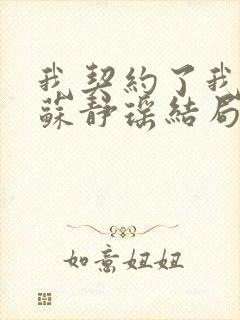 我契約了我
蘇靜瑶結局
如意妞妞